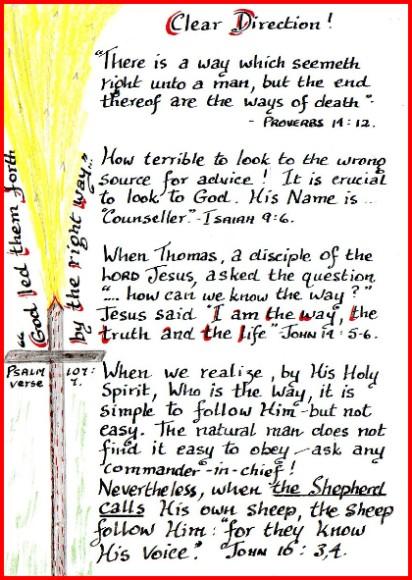 Clear Direction!
"There is a way which seemeth
right unto a man, but the end
thereof are the ways of death".
- PROVERBS 14:12.
How terrible to look to the wrong
source for advice! It is crucial
to look to God. His Name is ..
"Counseller" - ISAIAH 9:6.
When Thomas, a disciple of the
LORD Jesus, asked the question
".... how can we know the way?"
Jesus said "I am the way, the
truth and the life" - JOHN 14:5-6.
When we realize, by His Holy
Spirit, Who is the Way, it is
simple to follow Him - but not
easy. The natural man does not
find it easy to obey - ask any
"commander"-in-chief!
Nevertheless, when the Shepherd
calls His own sheep, the sheep
follow Him: "for they know
His Voice." "JOHN 16: 3,4.
"God led them forth
by the right way..."
PSALM 107:
verse 7.